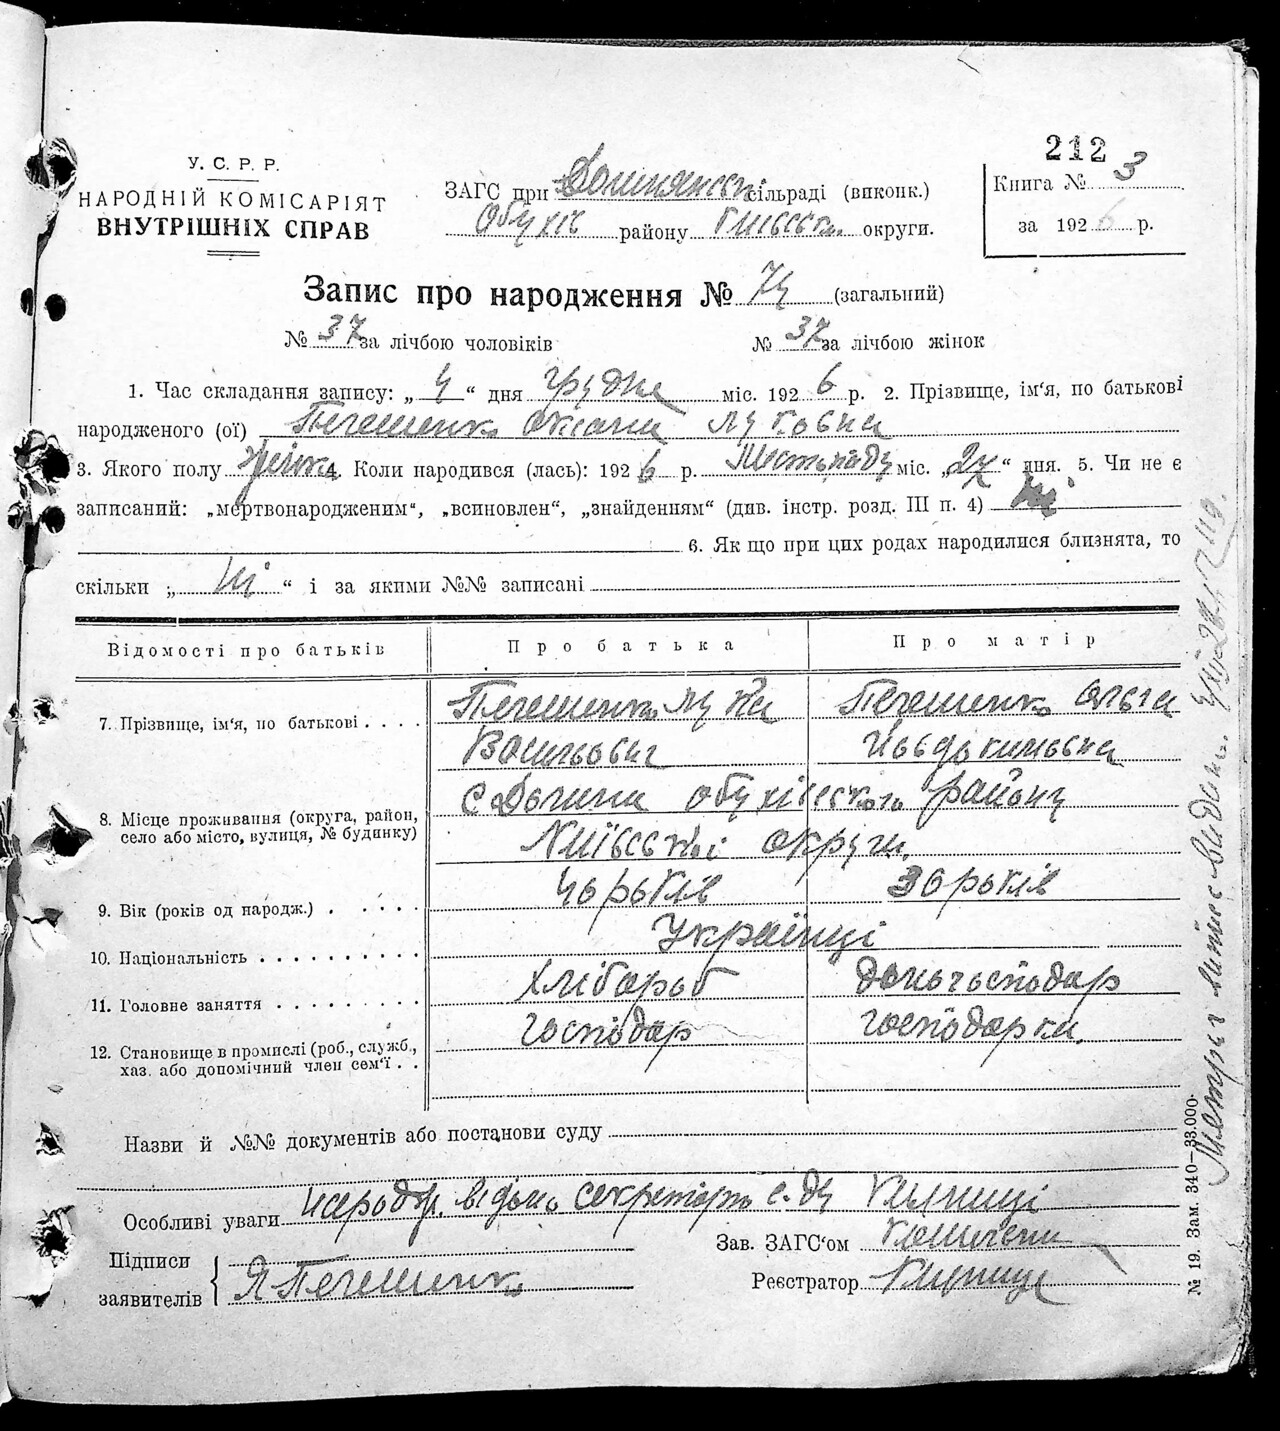 212
У. С. Р. Р.
НАРОДНІЙ КОМІСАРІЯТ
ВНУТРІШНІХ СПРАВ
ЗАГС при Долинянськ. сільраді (виконк.)
Обухів району Київськ. округи.
Книга № 3
за 1926 р.
Запис про народження № 74 (загальний)
№ 37 за лічбою чоловіків № 37 за лічбою жінок
1. Час складання запису: „ 4 “ дня грудня міс. 1926 р. 2. Прізвище, ім‘я, по батькові
народженого (ої) Пегешенко Оксана Луковна
3. Якого полу жінка 4. Коли народився (лась): 1926 р. Листопаду міс. „27“ дня. 5. Чи не є
записаний: „мертвонародженим“, „всиновлен“, „знайденням“ (див. інстр. розд. III п. 4) Ні
6. Як що при цих родах народилися близнята, то
скільки „ Ні “ і за якими №№ записані
Відомості про батьків Про батька Про матір
7. Прізвище, ім‘я, по батькові . . . . Пегешенко Лука Пегешенко Ольга
Васильович Йовдокимовна
8. Місце проживання (округа, район, село або місто, вулиця, № будинку) с Долина Обухівського району
Київської округи.
9. Вік (років од народж.) . . . . . років 30 років
10. Національність . . . . . . . . . . Українці
11. Головне заняття . . . . . . . . . Хлібороб домогосподар
12. Становище в промислі (роб., служб., хаз. або допомічний член сем‘ї . . господар господарка.
Назви й №№ документів або постанови суду
Особливі уваги відомо секретарь с-ду
Підписи
заявителів Я Пегешенко
Зав. ЗАГС‘ом
Реєстратор
№ 19. Зам. 340—33.000.